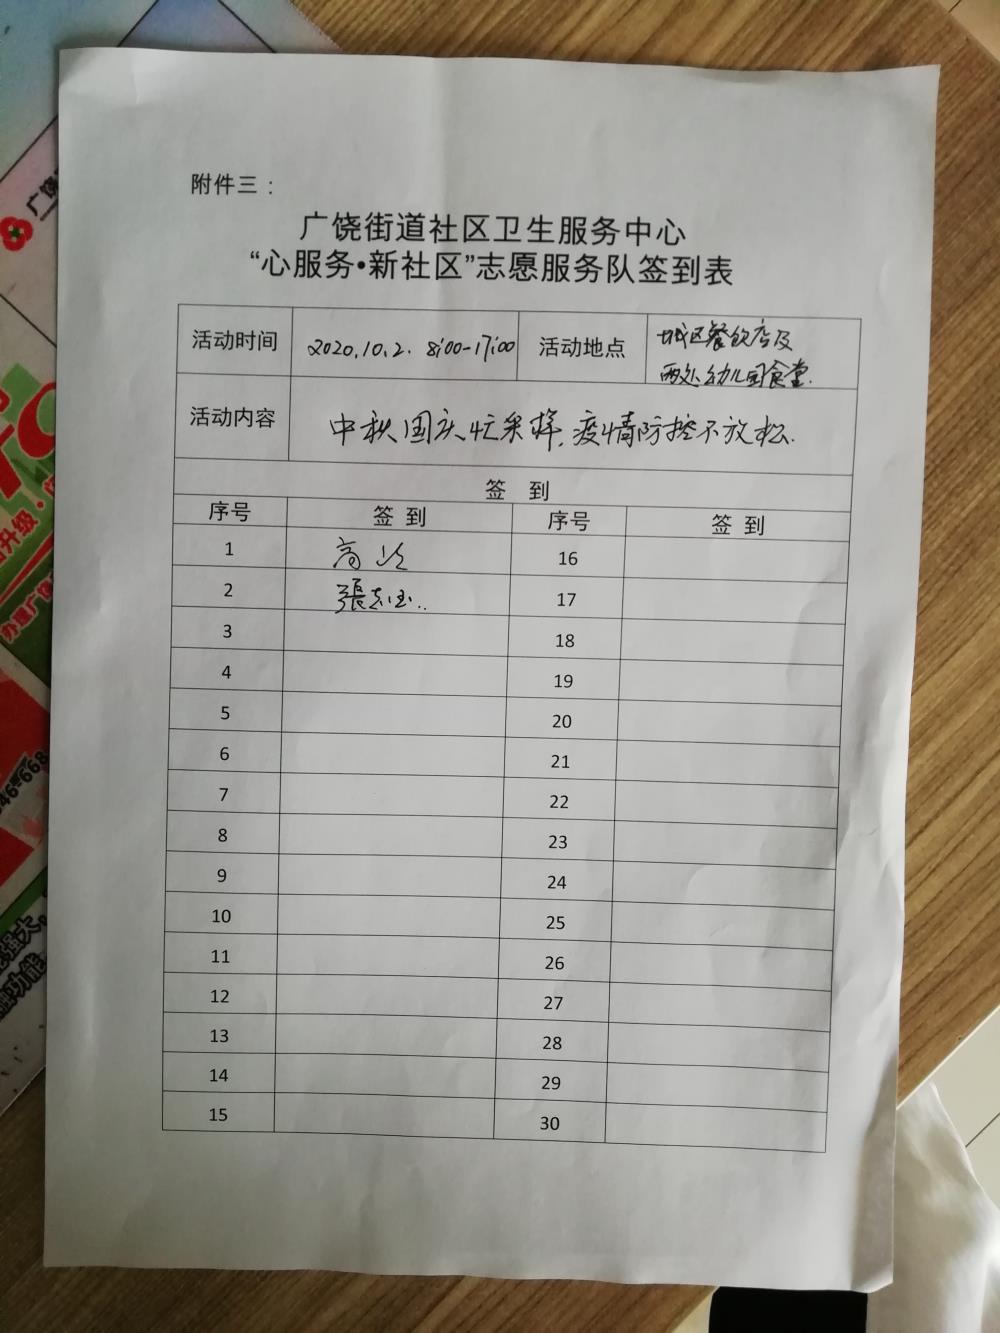 附件三：
广饶街道社区卫生服务中心
“心服务•新社区”志愿服务队签到表
活动时间 2020.10.2. 8:00-17:00 活动地点 城区餐饮店及
两处幼儿园食堂.
活动内容 中秋国庆忙采样,疫情防控不放松.
签 到
序号 签 到 序号 签 到
1 高 16
2 張志国.. 17
3 18
4 19
5 20
6 21
7 22
8 23
9 24
10 25
11 26
12 27
13 28
14 29
15 30
广饶
升级·
办理广饶
546-668
强大
功能